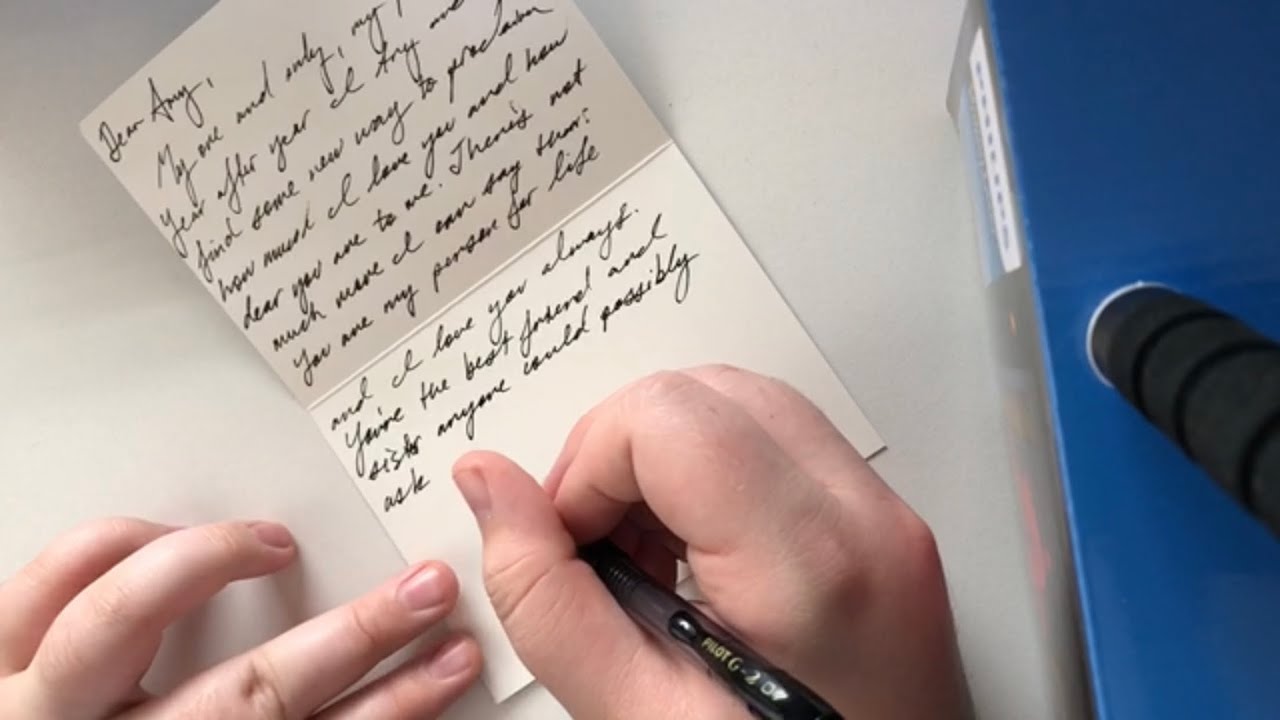 Dear Amy,
My one and only, my
year after year I try and
find some new way to proclaim
how much I love you and how
dear you are to me. There's not
much more I can say than:
You are my person for life
and I love you always.
You're the best friend and
sister anyone could possibly
ask
PILOT G-2 07